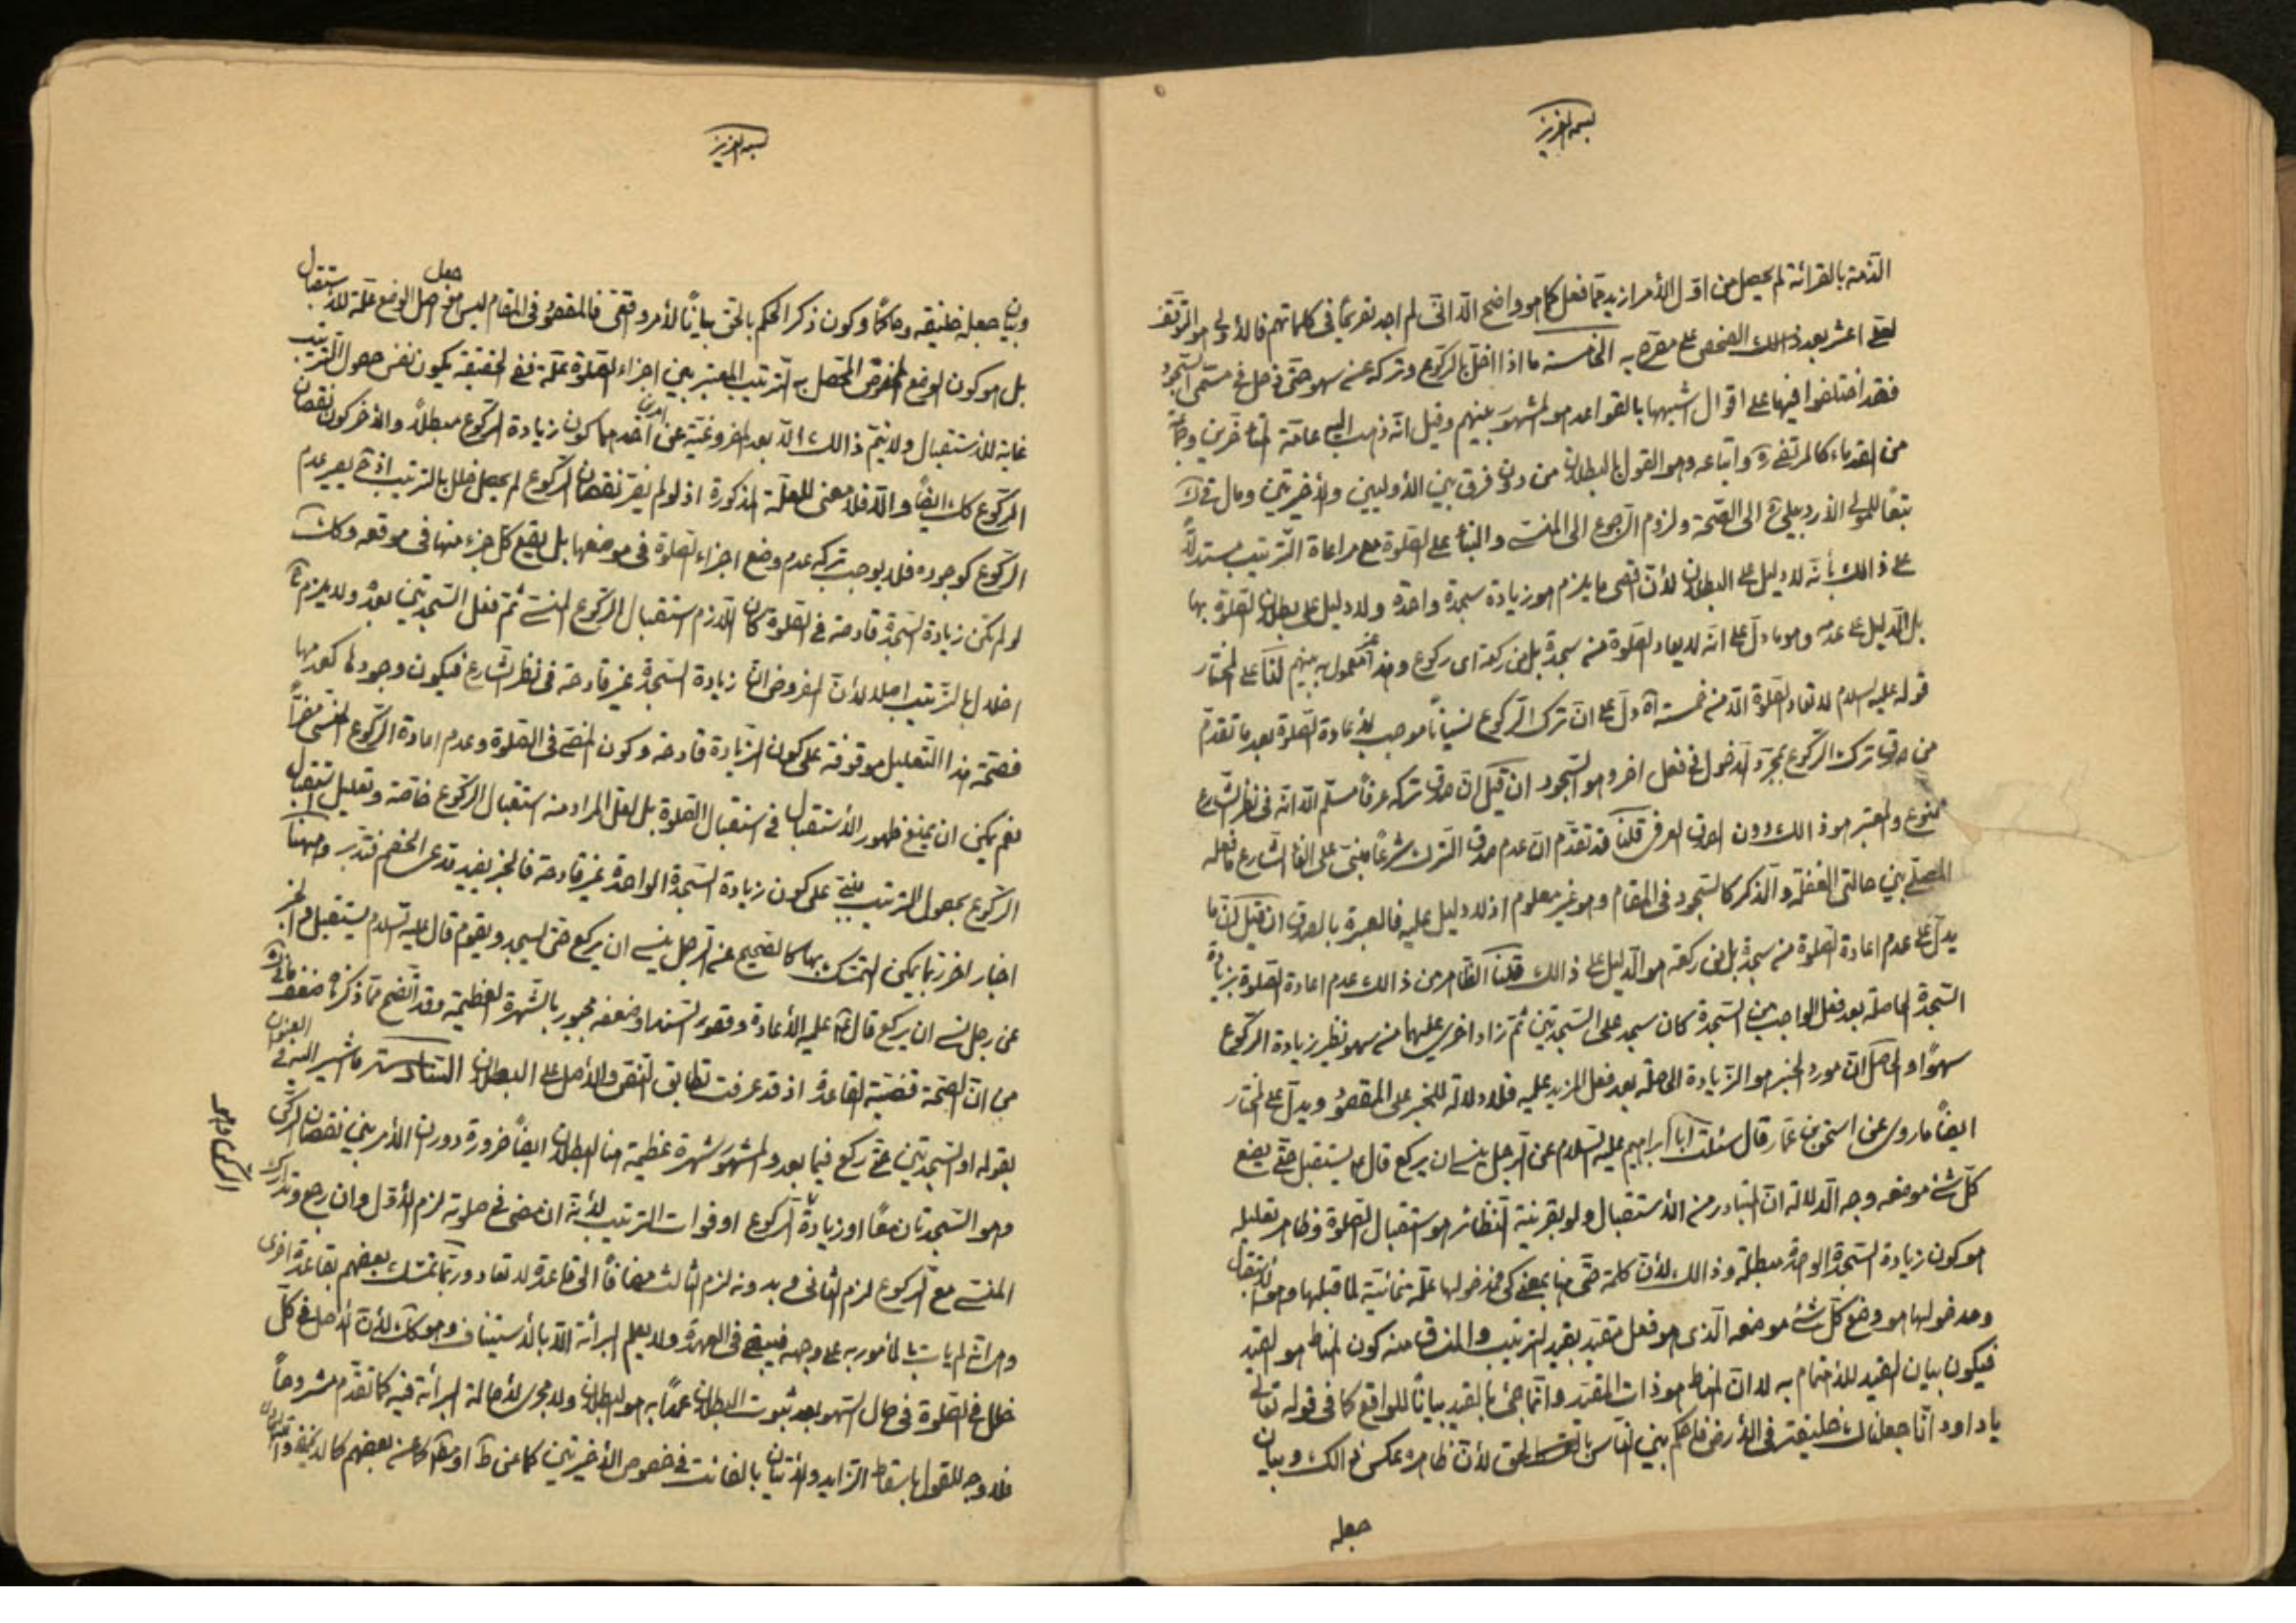 بسمه العزيز
الذمة بالقرائة لم يحصل من اول الأمر ازيد مما فعل كما هو واضح الا انى لم اجد تعرضا فى كلماتهم فالأولى هو التوقف
لعلى اعثر بعد ذالك الفحص على مصرح به الخامسة ما اذا اخل بالركوع وتركه عنه سهو حتى دخل فى مسمى السجود
فقد اختلفوا فيها على اقوال اشبهها بالقواعد هو المشهور بينهم وقيل انه ذهب اليه عامة المتأخرين وجماعة
من القدماء كالمرتضى ره واتباعه وهو القول بالبطلان من دون فرق بين الأوليين والأخيرتين ومال فى ك
تبعا للمولى الأردبيلى ره الى الصحة ولزوم الرجوع الى المنسى والبناء على الصلوة مع مراعاة الترتيب مستدلا
على ذالك بأنه لا دليل على البطلان لأن اقصى ما يلزم هو زيادة سجدة واحدة ولا دليل على بطلان الصلوة بها
بل الدليل على عدمه وهو ما دل على انه لا يعاد الصلوة منه سجدة بل من ركعة اى ركوع وهذا معمول به بينهم لنا على المختار
قوله عليه السلام لا تعاد الصلوة الا من خمسة اه دل على ان ترك الركوع نسيانا موجب لأعادة الصلوة بعد ما تقدم
من صدق ترك الركوع بمجرد الدخول فى فعل اخر وهو السجود ان قيل ان صدق تركه عرفا مسلم الا انه فى نظر الشارع
ممنوع والمعتبر هو ذالك دون الصدق العرفى قلنا قد تقدم ان عدم صدق الترك شرعا مبنى على الغاء الشارع ما فعله
المصلى بين حالتى الغفلة والذكر كالسجود فى المقام وهو غير معلوم اذ لا دليل عليه فالعبرة بالصدق ان قيل ان ما
يدل على عدم اعادة الصلوة منه سجدة بل من ركعة هو الدليل على ذالك قلنا الظاهر من ذالك عدم اعادة الصلوة بزيادة
السجدة الحاصلة بعد فعل الواجب من السجدة كان سجد على السجدتين ثم زاد اخرى عليهما منه سهو نظير زيادة الركوع
سهوا والحاصل ان مورد الخبر هو الزيادة الحاصلة بعد فعل المزيد عليه فلا دلالة للخبر على المقصود ويدل على المختار
ايضا ما روى عن اسحق بن عمار قال سئلت ابا ابراهيم عليه السلام عن الرجل ينسى ان يركع قال ع يستقبل حتى يضع
كل شئ موضعه وجه الدلالة ان المتبادر من الأستقبال ولو بقرينة النظائر هو استقبال الصلوة وظاهر تعليله
هو كون زيادة السجدة الواحدة مبطلة وذالك لأن كلمة حتى هنا بمعنى كى فمدخولها علة غائية لما قبلها وهو الأستقبال
ومدخولها هو وضع كل شئ موضعه الذى هو فعل مقيد بقيد الترتيب والمنساق منه كون المناط هو القيد
فيكون بيان القيد للأهتمام به لا ان المناط هو ذات المقيد وانما جئ بالقيد بيانا للواقع كما فى قوله تعالى
يا داود انا جعلناك خليفة فى الأرض فاحكم بين الناس بالحق لأن ظاهره عكس ذالك وبيان
جعله
بسمه العزيز
وبيان جعله خليفة وحاكما وكون ذكر الحكم بالحق بيانا لأمر واقعى فالمقصود فى المقام ليس هو جعل اصل الوضع علة للأستقبال
بل هو كون الوضع المفروض المتحصل به الترتيب المعتبر بين اجزاء الصلوة علة ففى الحقيقة يكون نفس حصول الترتيب
غاية للأستقبال ولا يتم ذالك الا بعد الفروغية عن امرين احدهما كون زيادة الركوع مبطلا والأخر كون نقصان
الركوع كك ايضا والا فلا معنى للعلة المذكورة اذ لو لم يضر نقصان الركوع لم يحصل خلل بالترتيب اذ ح يصير عدم
الركوع كوجوده فلا يوجب تركه عدم وضع اجزاء الصلوة فى موضعها بل يقع كل جزء منها فى موقعه وكك
لو لم تكن زيادة السجدة قادحة فى الصلوة كان اللازم استقبال الركوع المنسى ثم فعل السجدتين بعده ولا يلزم ح
اخلال بالترتيب اصلا لأن المفروض ان زيادة السجدة غير قادحة فى نظر الشارع فيكون وجودها كعدمها
فصحة هذا التعليل موقوفة على كون الزيادة قادحة وكون المضى فى الصلوة وعدم اعادة الركوع المنسى مضرا
نعم يمكن ان يمنع ظهور الأستقبال فى استقبال الصلوة بل لعل المراد منه استقبال الركوع خاصة وتعليل استقبال
الركوع بحصول الترتيب مبنى على كون زيادة السجدة الواحدة غير قادحة فالخبر يفيد مدعى الخصم فتدبر وههنا
اخبار اخر ربما يمكن التمسك بها كالصحيح عنه الرجل ينسى ان يركع حتى يسجد ويقوم قال عليه السلام يستقبل والخبر
عن رجل نسى ان يركع قال ع عليه الأعادة وقصور السند او ضعفه مجبور بالشهرة العظيمة وقد اتضح مما ذكرنا ضعف
من ان الصحة قضية القاعدة اذ قد عرفت تطابق النص والأصل على البطلان السادسة ما اشير اليه فى العنوان
بقوله او السجدتين حتى ركع فيما بعد والمشهور شهرة عظيمة هنا البطلان ايضا ضرورة دوران الأمر بين نقصان الركن
وهو السجدتان معا او زيادة الركوع او فوات الترتيب لأنه ان مضى فى صلوته لزم الأول وان رجع وتدارك
المنسى مع الركوع لزم الثانى وبدونه لزم الثالث مضافا الى قاعدة لا تعاد وربما تمسك بعضهم بقاعدة اخرى
وهى انه لم يأت بالمأمور به على وجهه فيبقى فى العهدة ولا يعلم البرائة الا بالأستيناف وهو كك لأن الأصل فى كل
خلل فى الصلوة فى حال السهو بعد ثبوت البطلان عمدا به هو البطلان ولا مجرى لأصالة البرائة فيه كما تقدم مشروحا
فلا وجه للقول باسقاط الزايد والأتيان بالفائت فى خصوص الأخيرتين كما عن ط